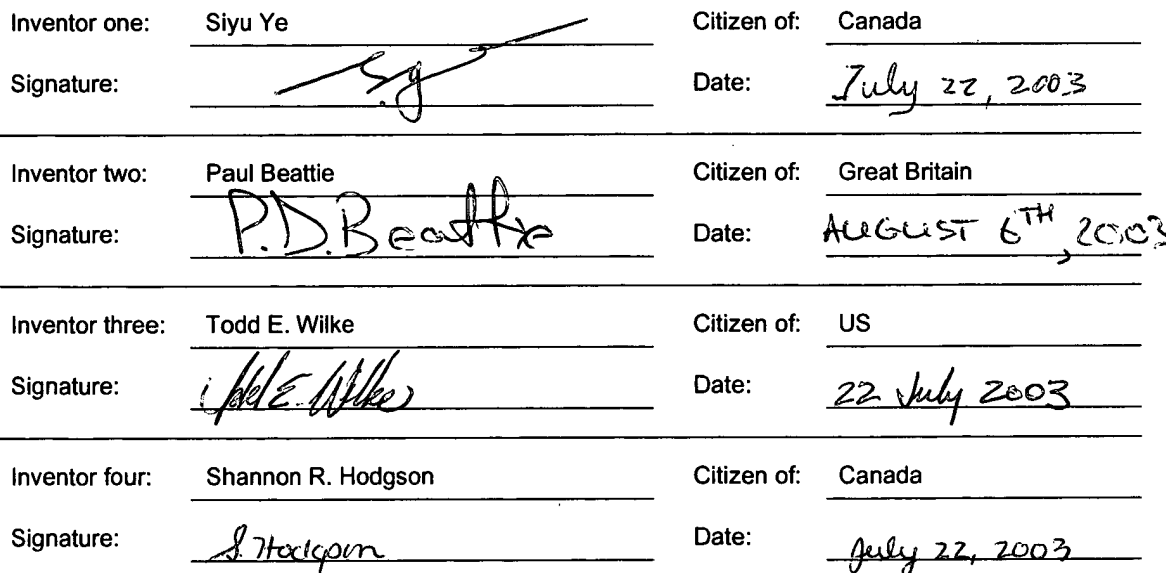 Inventor one: Siyu Ye Citizen of: Canada
Signature: S.Y Date: July 22, 2003
Inventor two: Paul Beattie Citizen of: Great Britain
Signature: P.D. Beattie Date: AUGUST 6TH, 2003
Inventor three: Todd E. Wilke Citizen of: US
Signature: Todd E. Wilke Date: 22 July 2003
Inventor four: Shannon R. Hodgson Citizen of: Canada
Signature: S. Hodgson Date: July 22, 2003